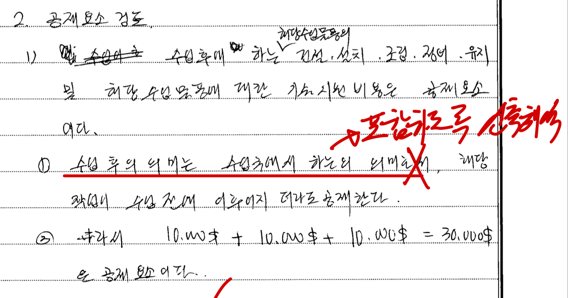 2. 공제요소 검토.
해당수입물품의
1) 수입후에 하는 건설·설치·조립·정비·유지
및 해당 수입물품에 대한 기술지원비용은 공제요소
이다.
→ 포함되도록
① 수입 후의 의미는 수입국에서 하는의 의미로, 해당
작업이 수입 전에 이루어지더라도 공제한다.
② 따라서 10.000$ + 10.000$ + 10.000$ = 30.000$
은 공제요소이다.